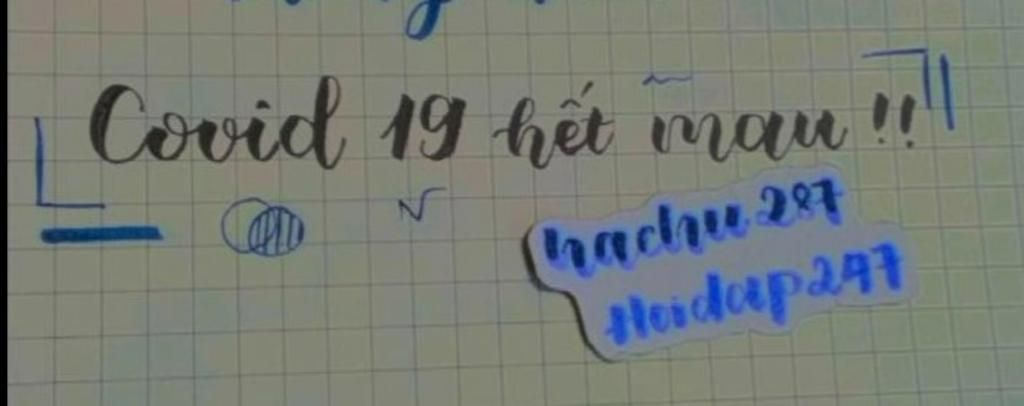 Covid 19 hết mau !!
hachu287
Hoidap247